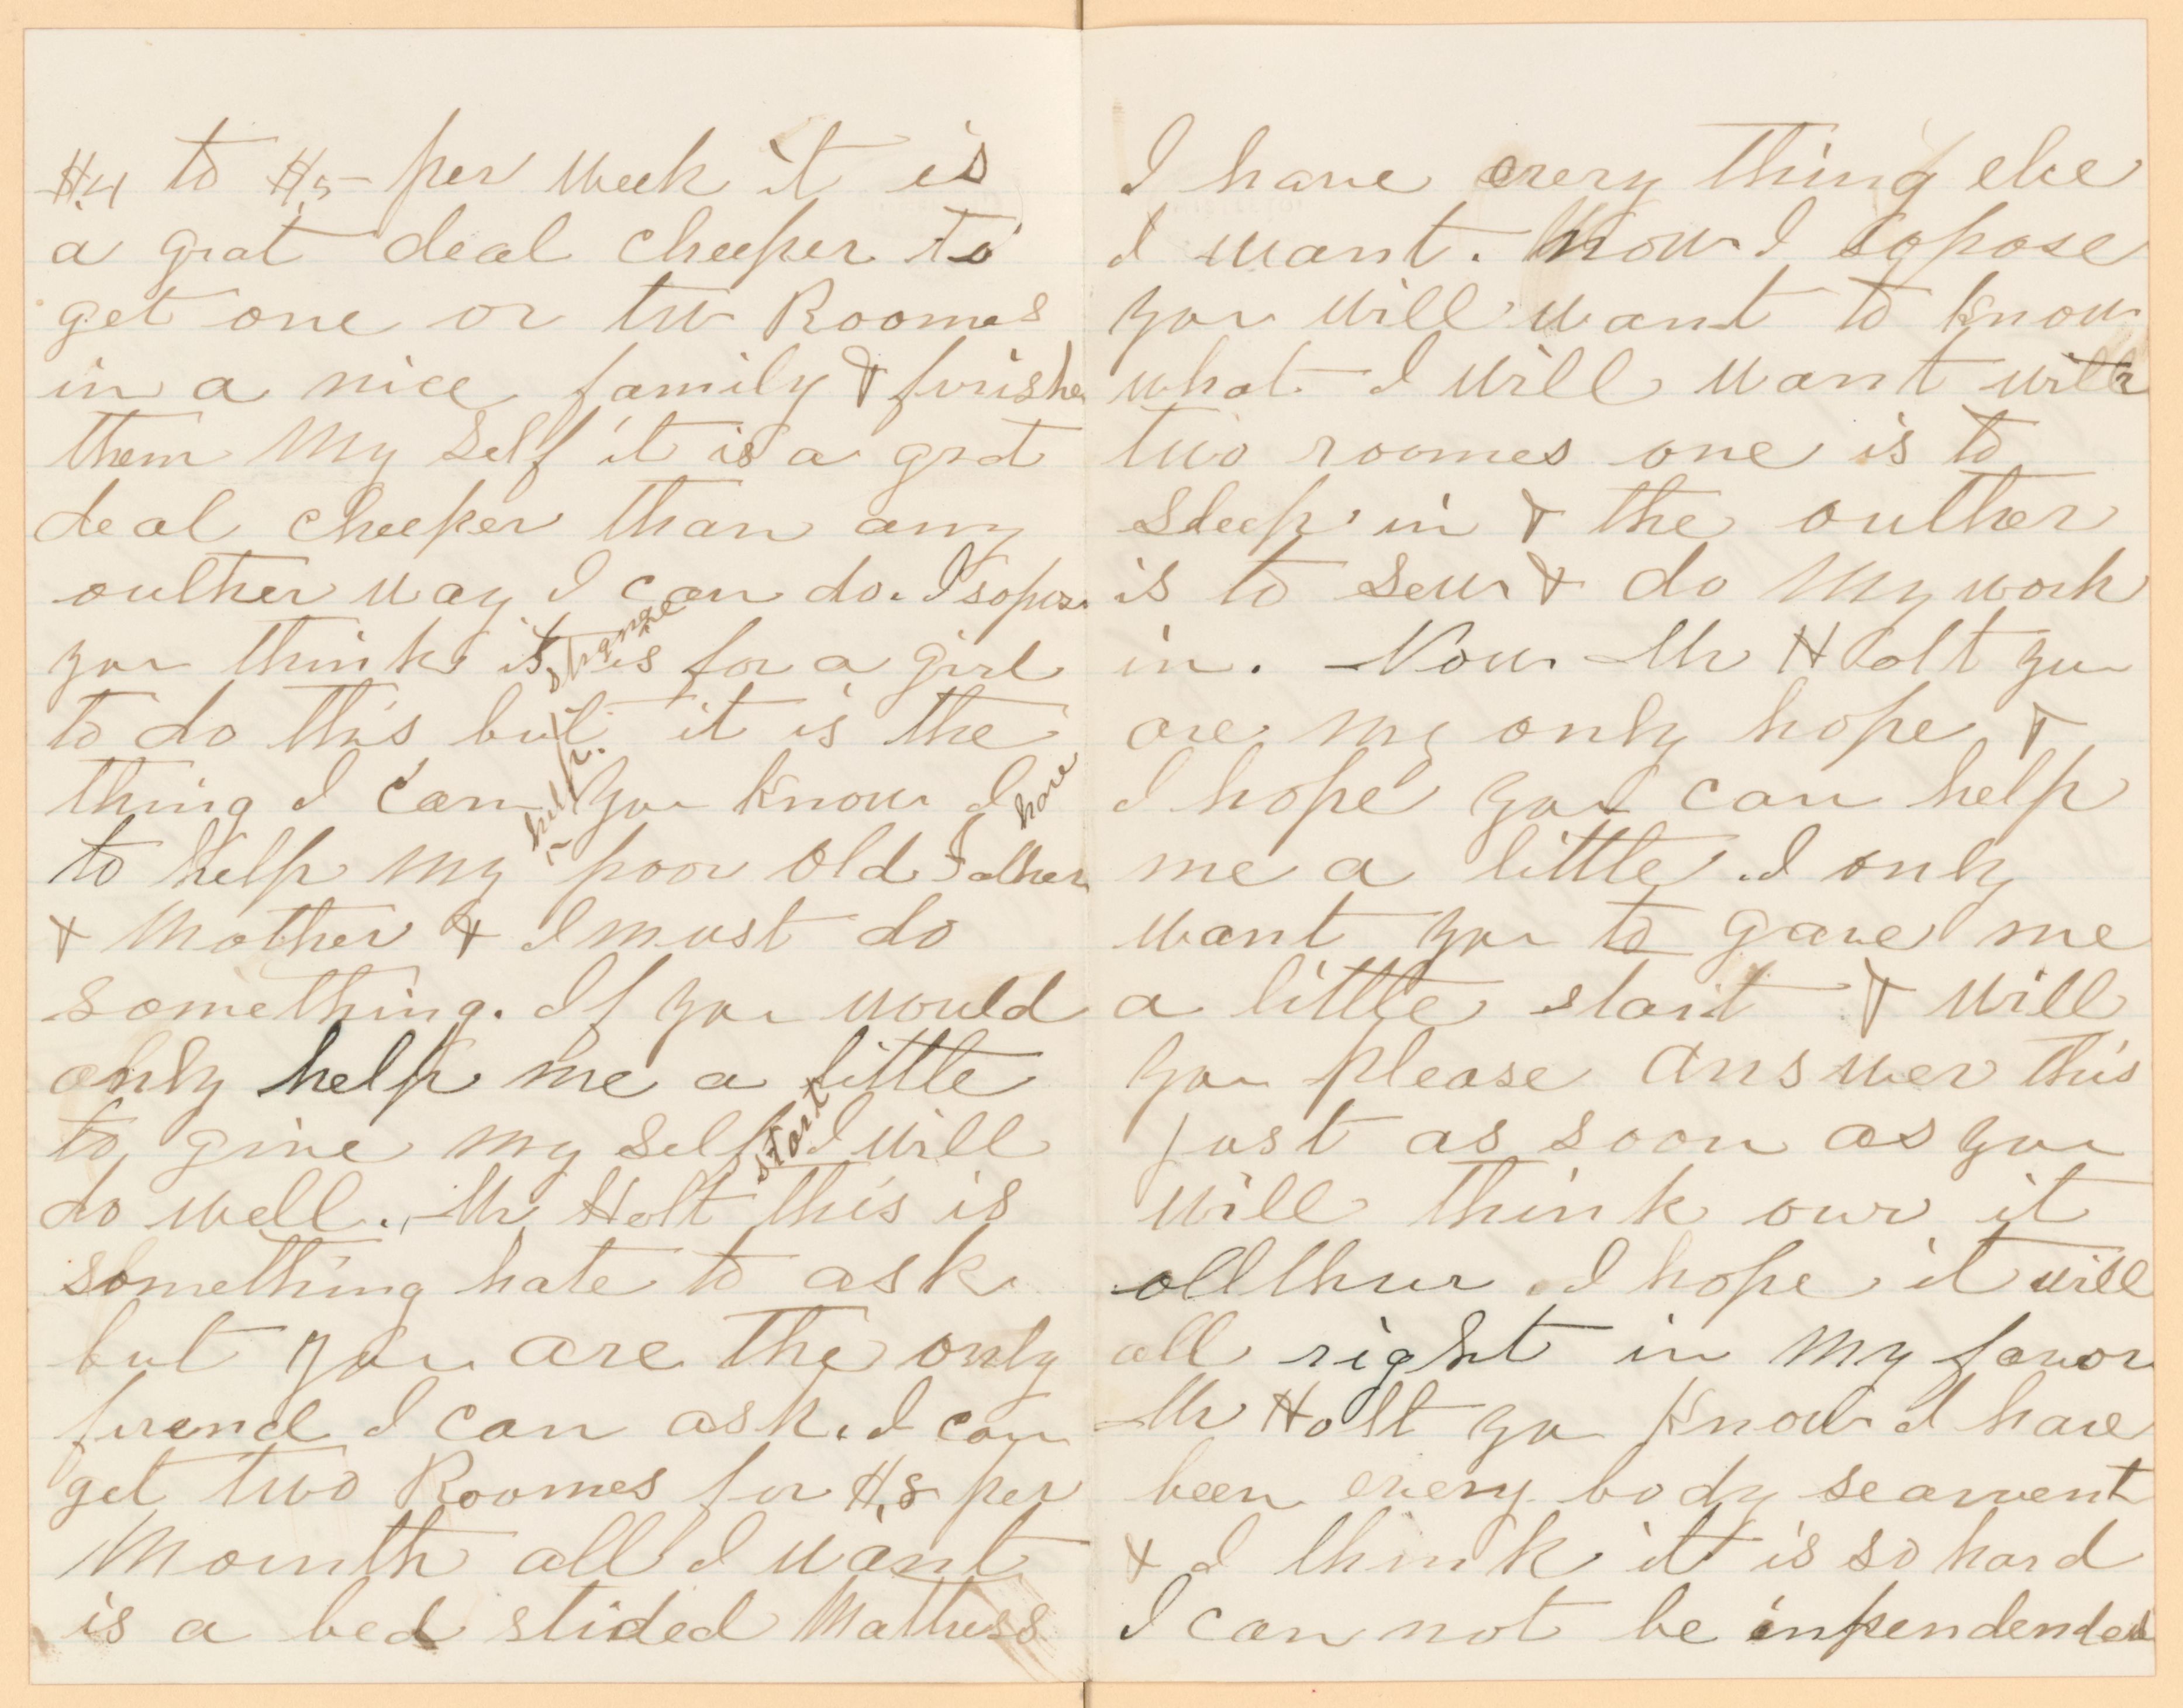 $4 to $5 per week it is
a grat deal cheeper to
get one or two Roomes
in a nice family & funishe
them my self it is a grat
deal cheeper than any
outher way I can do. I sopose
you think it is strange for a girl
to do this but it is the
thing I can help. You know I have
to help my poor old Father
& Mother & I must do
something. If you would
only help me a little
to give my self start I will
do well. Mr Holt this is
something hate to ask
but you are the only
firend I can ask. I can
get two Roomes for $8 per
Mounth all I want
is a bed stided Mattress
I have every thing else
I want. Now I sopose
you will want to know
what I will want with
two roomes one is to
sleep in & the outher
is to sew & do my work
in. Now Mr Holt you
are my only hope &
I hope you can help
me a little. I only
want you to gave me
a little start & will
you please answer this
just as soon as you
will think ovr it
all thur. I hope it will
all right in my favor
Mr Holt you know I have
been every body searvent
& I think it is so hard
I can not be inpendended